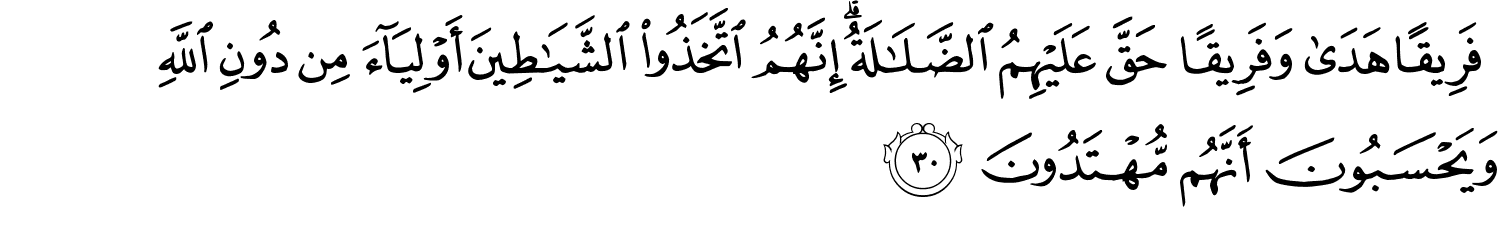 فَرِيقًا هَدَىٰ وَفَرِيقًا حَقَّ عَلَيْهِمُ ٱلضَّلَـٰلَةُ ۗ إِنَّهُمُ ٱتَّخَذُوا۟ ٱلشَّيَـٰطِينَ أَوْلِيَآءَ مِن دُونِ ٱللَّهِ
وَيَحْسَبُونَ أَنَّهُم مُّهْتَدُونَ ٣٠